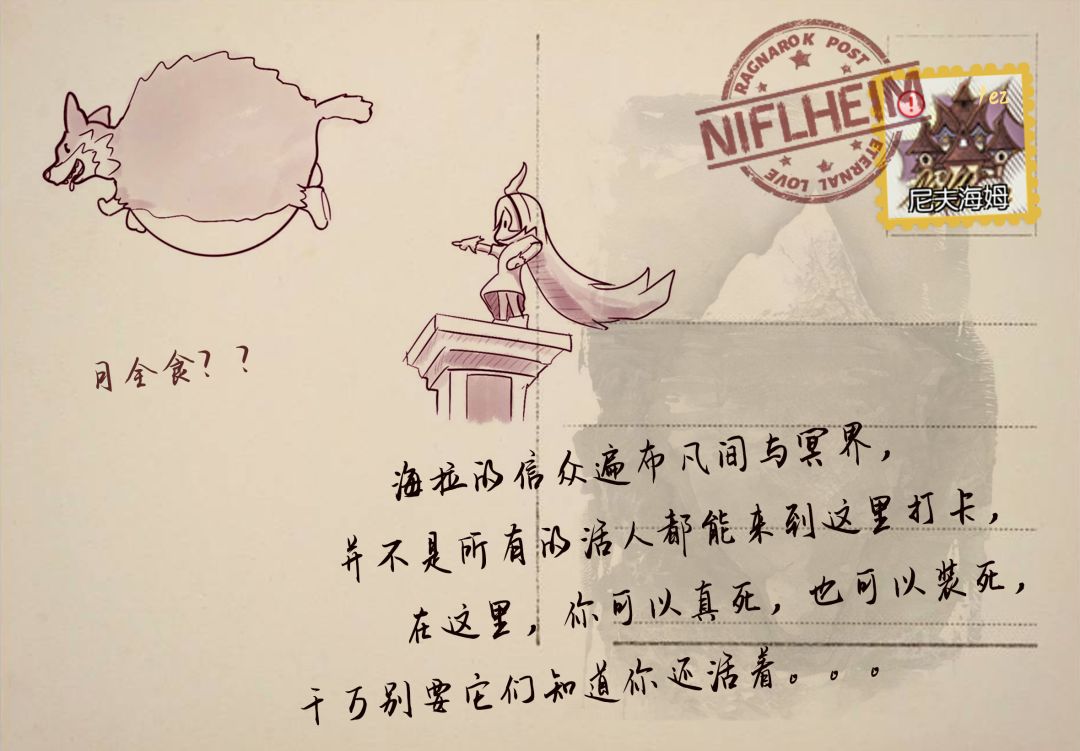 RAGNAROK POST
NIFLHEIM
ETERNAL LOVE
尼夫海姆
月全食？？
海拉的信众遍布凡间与冥界，
并不是所有的活人都能来到这里打卡，
在这里，你可以真死，也可以装死，
千万别要它们知道你还活着。。。